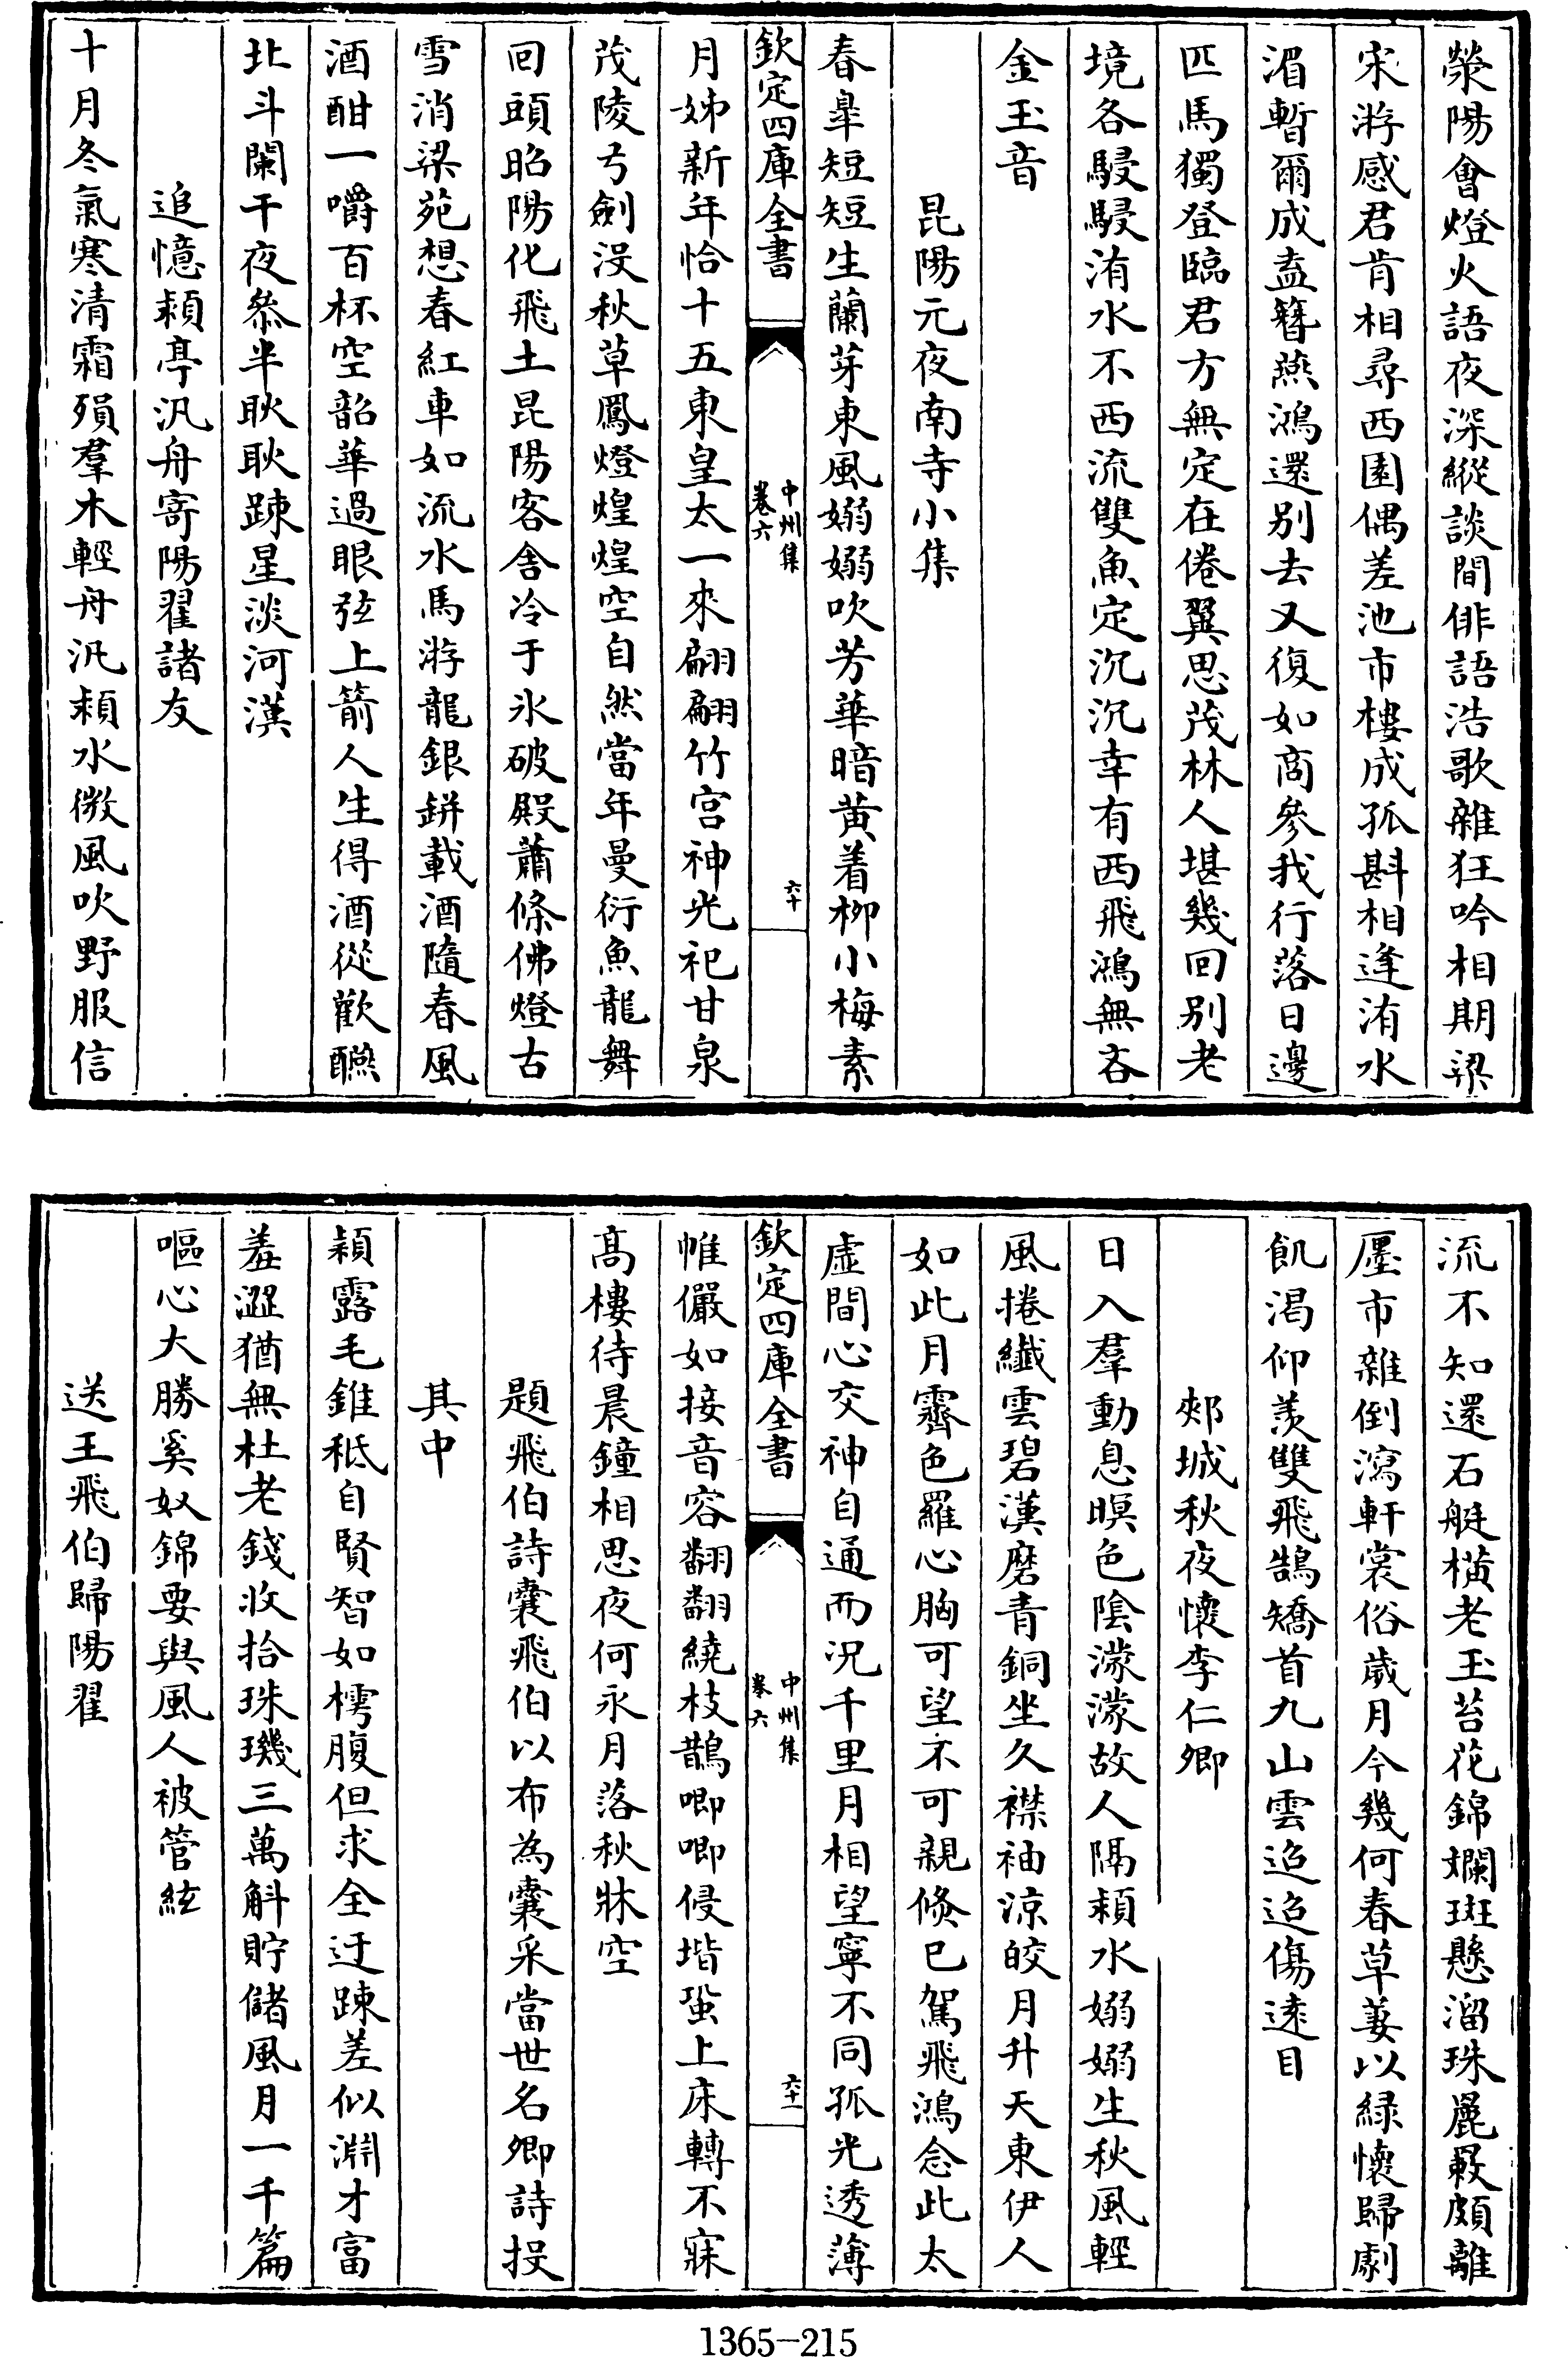 滎陽會燈火語夜深縱談間俳語浩歌雜狂吟相期梁
宋游感君肯相尋西園偶差池市樓成孤斟相逢洧水
湄暫爾成盍簪燕鴻還别去又復如商參我行落日邊
匹馬獨登臨君方無定在倦翼思茂林人堪幾回别老
境各駸駸洧水不西流雙魚定沉沉幸有西飛鴻無吝
金玉音
昆陽元夜南寺小集
春皐短短生蘭芽東風嫋嫋吹芳華暗黄着栁小梅素
欽定四庫全書
中州集
卷六
六十
月姊新年恰十五東皇太一來翩翩竹宫神光祀甘泉
茂陵弓劍没秋草鳳燈煌煌空自然當年曼衍魚龍舞
回頭昭陽化飛土昆陽客舎冷于氷破殿蕭條佛燈古
雪消梁苑想春紅車如流水馬游龍銀缾載酒隨春風
酒酣一嚼百杯空韶華過眼弦上箭人生得酒從歡醼
北斗闌干夜叅半耿耿踈星淡河漢
追憶潁亭汎舟寄陽翟諸友
十月冬氣寒清霜殞羣木輕舟汎潁水微風吹野服信
流不知還石艇横老玉苔花錦斕斑懸溜珠麗䉤頗離
㕓市雜倒瀉軒裳俗歲月今幾何春草萋以緑懷歸劇
飢渇仰羡雙飛鵠矯首九山雲迢迢傷逺目
郟城秋夜懷李仁卿
日入羣動息暝色陰濛濛故人隔潁水嫋嫋生秋風輕
風捲纖雲碧漢磨青銅坐久襟袖涼皎月升天東伊人
如此月霽色羅心胸可望不可親倐已駕飛鴻念此太
虚間心交神自通而况千里月相望寧不同孤光透薄
欽定四庫全書
中州集
卷六
六十一
帷儼如接音容翻翻繞枝鵲喞喞侵堦蛩上床轉不寐
髙樓待晨鐘相思夜何永月落秋牀空
題飛伯詩囊飛伯以布為囊采當世名卿詩投
其中
穎露毛錐秪自賢智如樗腹但求全迂踈差似淵才富
羞澀猶無杜老錢收拾珠璣三萬斛貯儲風月一千篇
嘔心大勝奚奴錦要與風人被管絃
送王飛伯歸陽翟
1365-215